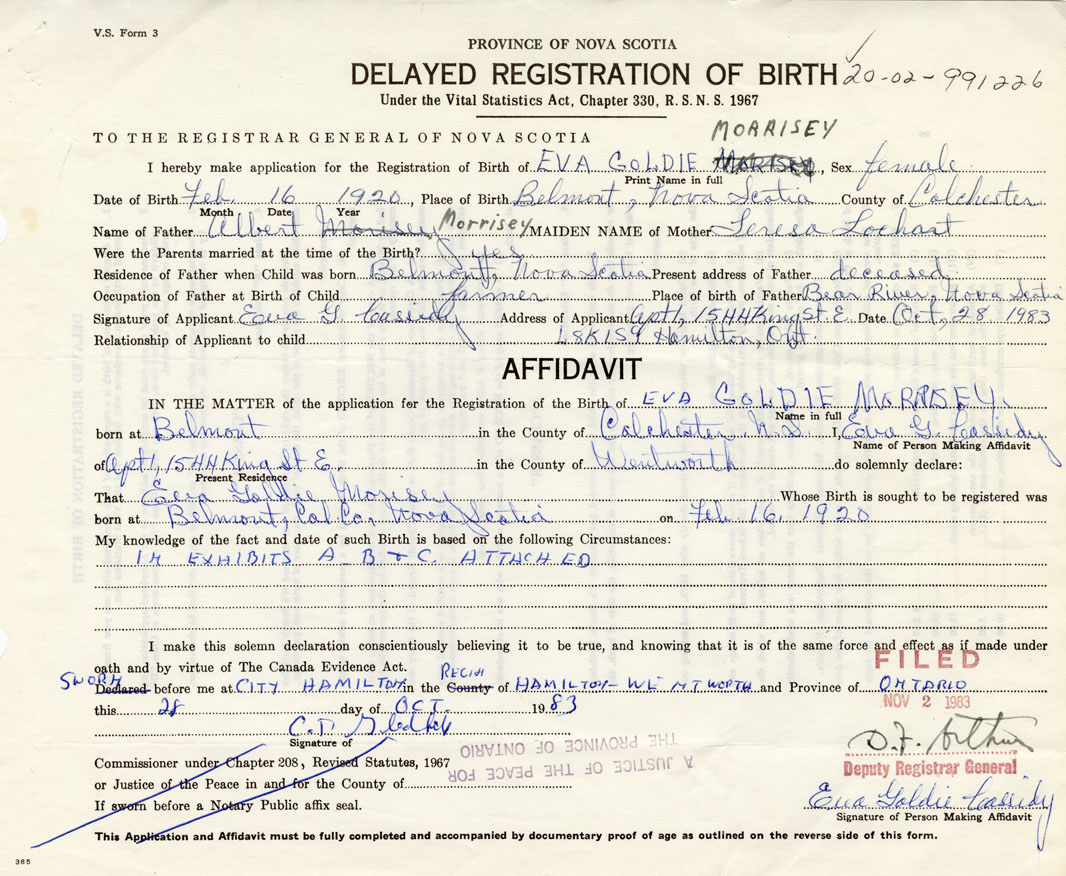 V.S. Form 3
PROVINCE OF NOVA SCOTIA
DELAYED REGISTRATION OF BIRTH 20-02-991226
Under the Vital Statistics Act, Chapter 330, R.S.N.S. 1967
TO THE REGISTRAR GENERAL OF NOVA SCOTIA
MORRISEY
I hereby make application for the Registration of Birth of EVA GOLDIE MORISEY, Sex female
Print Name in full
Date of Birth Feb. 16 1920, Place of Birth Belmont, Nova Scotia County of Colchester
Month Date Year
Name of Father Albert Morisey Morrisey MAIDEN NAME of Mother Teresa Lochart
Were the Parents married at the time of the Birth? yes
Residence of Father when Child was born Belmont, Nova Scotia Present address of Father deceased
Occupation of Father at Birth of Child farmer Place of birth of Father Bear River, Nova Scotia
Signature of Applicant Eva G. Cassidy Address of Applicant Apt 1, 1544 King St E. Date Oct, 28 1983
Relationship of Applicant to child L8K1S9 Hamilton, Ont.
AFFIDAVIT
IN THE MATTER of the application for the Registration of the Birth of EVA GOLDIE MORRISEY.
Name in full
born at Belmont in the County of Colchester N.S. I, Eva G. Cassidy
Name of Person Making Affidavit
of Apt 1, 1544 King St E. in the County of Wentworth do solemnly declare:
Present Residence
That Eva Goldie Morisey Whose Birth is sought to be registered was
born at Belmont, Col. Co. Nova Scotia on Feb. 16, 1920
My knowledge of the fact and date of such Birth is based on the following Circumstances:
IN EXHIBITS A B & C. ATTACHED
I make this solemn declaration conscientiously believing it to be true, and knowing that it is of the same force and effect as if made under
oath and by virtue of The Canada Evidence Act.
FILED
SWORN REGION
Declared before me at CITY HAMILTON in the County of HAMILTON-WENTWORTH and Province of ONTARIO
NOV 2 1983
this 28 day of OCT. 1983
Signature of
D.F. Arthur
Deputy Registrar General
A JUSTICE OF THE PEACE FOR
THE PROVINCE OF ONTARIO
Commissioner under Chapter 208, Revised Statutes, 1967
or Justice of the Peace in and for the County of
If sworn before a Notary Public affix seal.
Eva Goldie Cassidy
Signature of Person Making Affidavit
This Application and Affidavit must be fully completed and accompanied by documentary proof of age as outlined on the reverse side of this form.
385